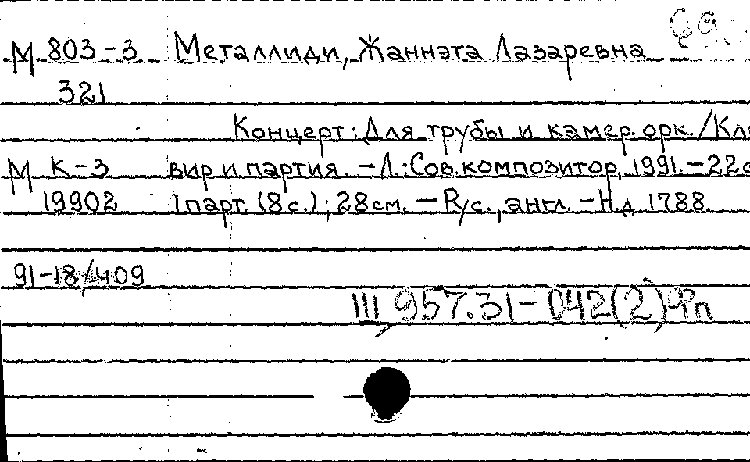 М 803-3 Металлиди, Жаннэта Лазаревна
321
Концерт: Для трубы и камер. орк. / Кла
М К-3 вир и партия. – Л.: Сов. композитор, 1991. – 22с
19902 1парт. (8с.); 28см. – Рус., англ. – Н.д. 1788
91-18/409
III 957.31-042(2) Фп